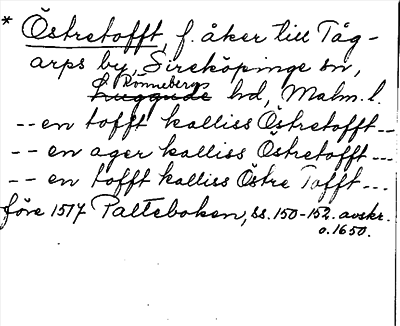 * Östretofft, f. åker till Tåg-
arps by, Sireköpinge sn,
Rönnebergs
hd, Malm. l.
--en tofft kalliss Östretofft---
-- en ager kalliss Östretofft ---
-- en tofft kalliss Östre Tofft ---
före 1517 Palteboken, ss. 150-152. avskr.
o. 1650.